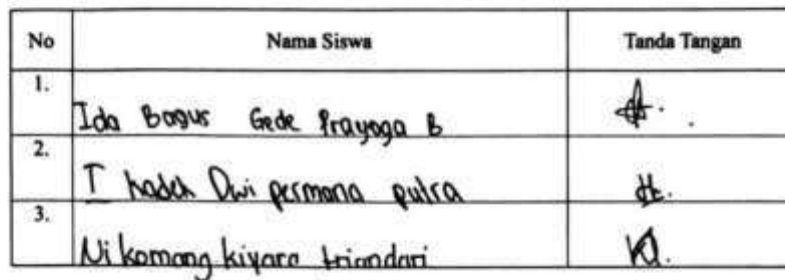 No Nama Siswa Tanda Tangan
1. Ida Bagus Gede Prayoga B
2. I kadek Dwi permana putra
3. Ni komang kiyara triandari